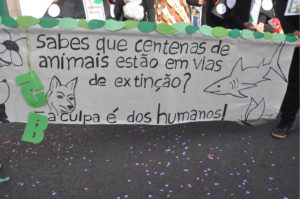 Sabes que centenas de
animais estão em vias
de extinção?
a culpa é dos humanos!